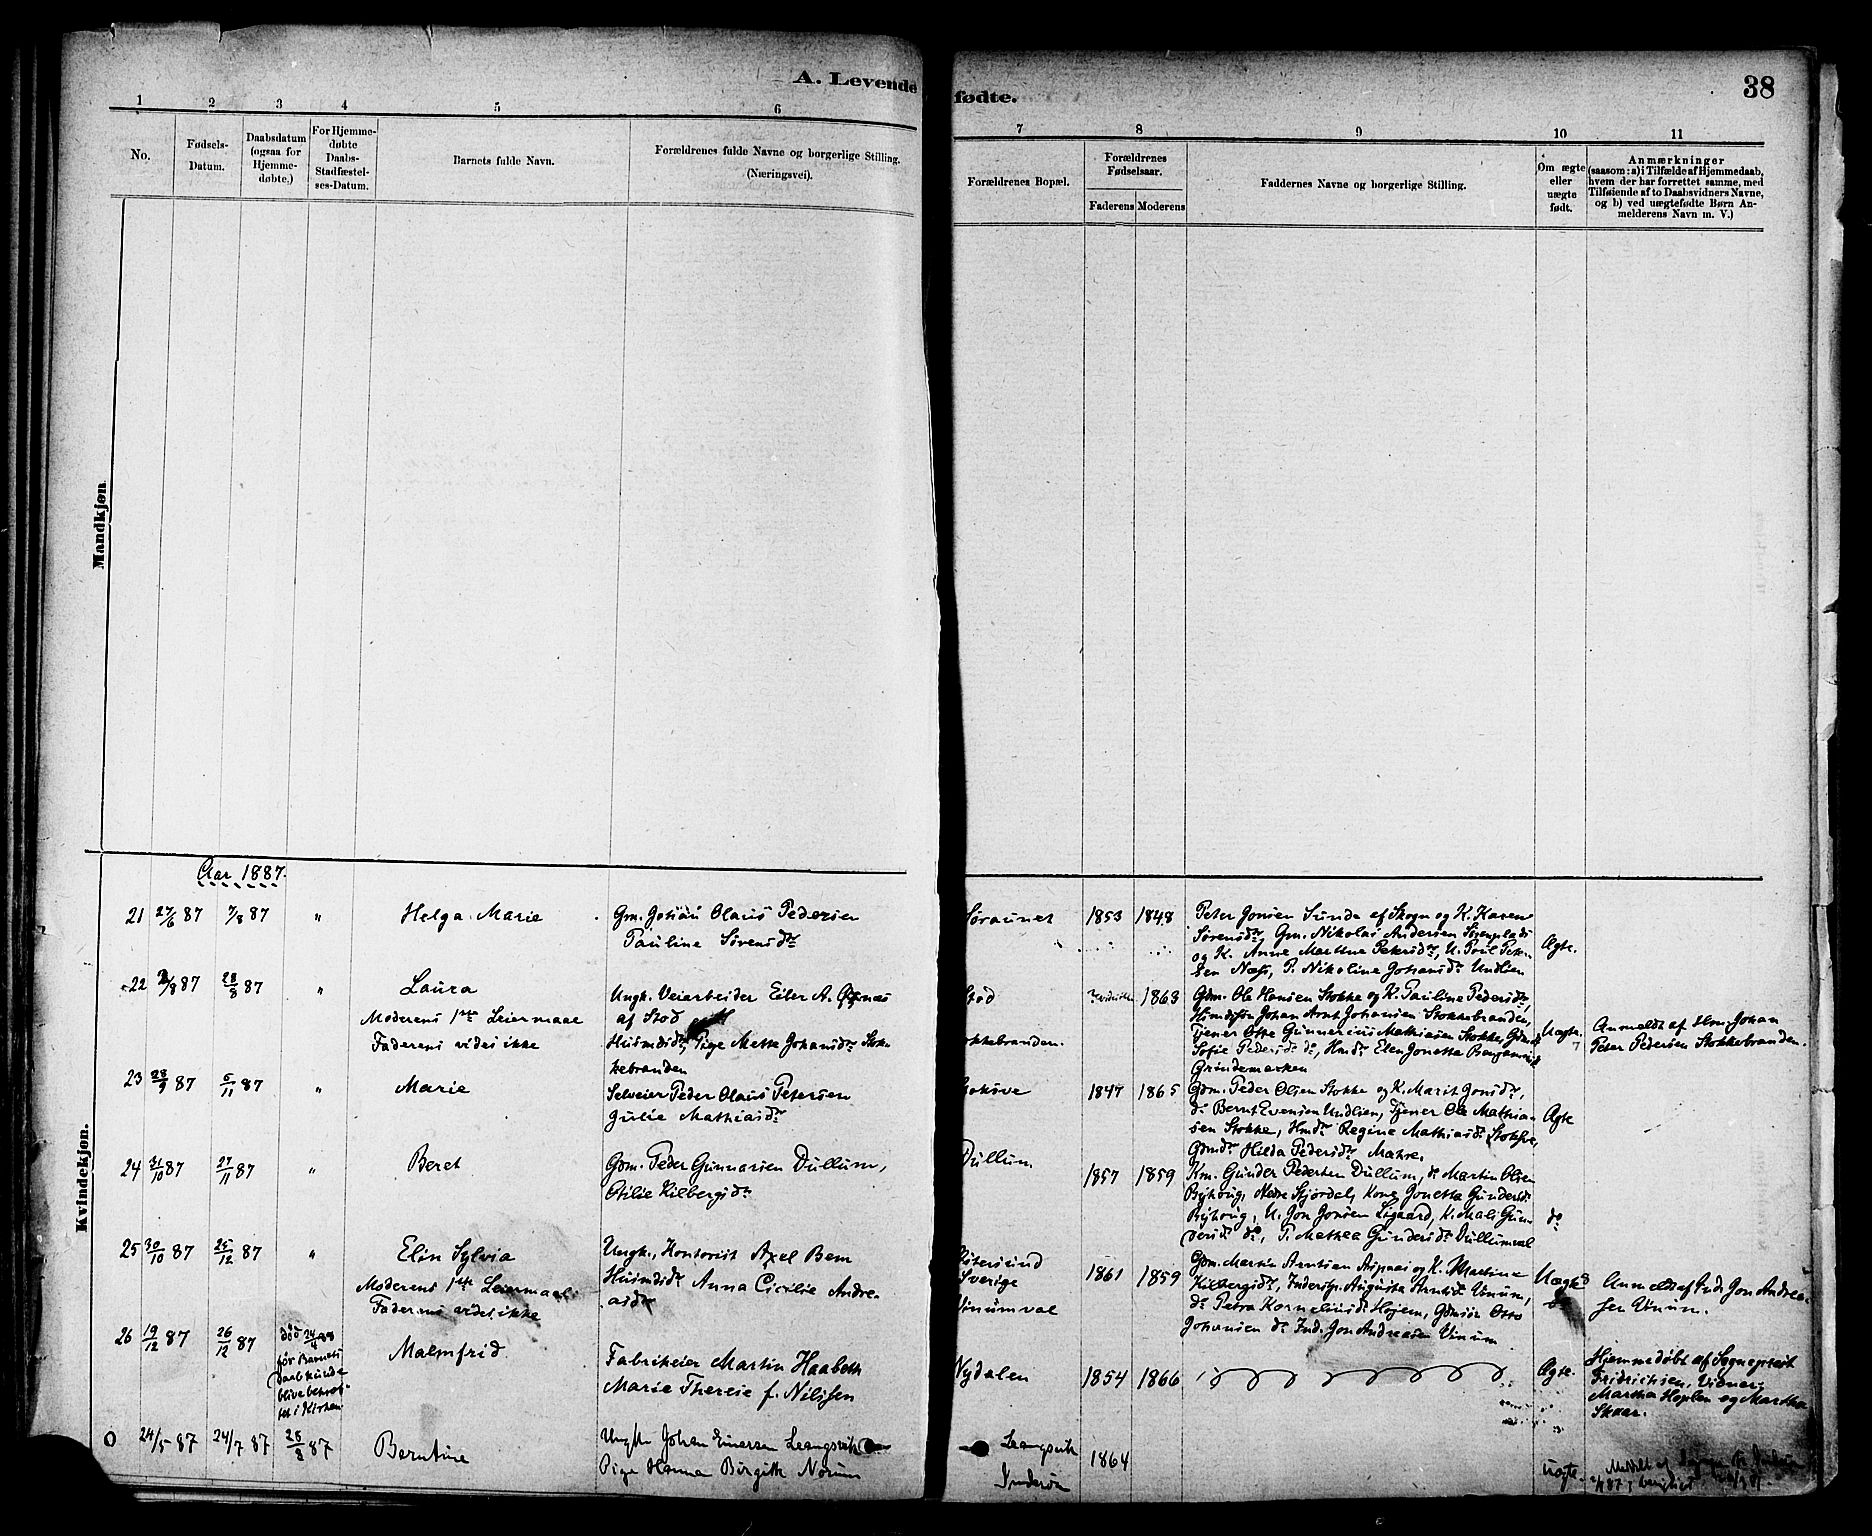 A. Levende fødte.
38
1 2 3 4 5 6 7 8 9 10 11
No.
Fødsels-
Datum.
Daabsdatum
(ogsaa for
Hjemme-
døbte.)
For Hjemme-
døbte
Daabs-
Stadfæstel-
ses-Datum.
Barnets fulde Navn.
Forældrenes fulde Navne og borgerlige Stilling.
(Næringsvei).
Forældrenes Bopæl.
Forældrenes
Fødselsaar.
Faderens Moderens
Faddernes Navne og borgerlige Stilling.
Om ægte
eller
uægte
født.
Anmærkninger
(saasom: a) i Tilfælde af Hjemmedaab,
hvem der har forrettet samme, med
Tilføiende af to Daabsvidners Navne,
og b) ved uægtefødte Børn An-
melderens Navn m. V.)
Mandkjøn
Kvindekjøn.
Aar 1887.
21 27/6 87 7/8 87 " Helga Marie
Gm. Johan Olaus Pedersen
Pauline Sørensdr
Søraunet 1853 1848
Peter Jonsen Sunde af Skogn og K. Karen
Sørensdr, Gm. Nikolai Andersen
og K. Anne Marthe Petersdr, U. Poul Peter-
sen Næss, P. Nikoline Johansdr Undlien
Ægte.
22 /8 87 28/8 87 " Laura
Moderens 1ste Leiermaal
Faderens vides ikke
Ungk. Veiarbeider Eiler A. Øernæs
af Stod
Husmdsdr, Pige Mette Johansdr Stok-
kebranden
Stod
okkebranden.
1863
Gdm. Ole Hansen Stokke og K. Pauline Pedersdr,
Husmdsøn Johan Arnt Johansen Stokkebranden,
Tjener Ole Gunnerius Mathiasen Stokke, Gdmd
Sofie Pedersdr do, Hmdr Elen Jonetta Benjaminsdr
Grindemarken
Uægte.
Anmeldt af Hm. Johan
Peter Pedersen Stokkebranden.
23 28/9 87 6/11 87 " Marie
Selveier Peder Olaus Petersen
Julie Mathiasdr
1847 1865
Gdm. Peder Olsen Stokke og K. Marit Jonsdr,
do Bernt Evensen Undlien, Tjener Ole Mathia-
sen Stokke, Hmdr Regine Mathiasdr Stokke,
Gdmdr Hilda Pedersdr Mahre.
Ægte
24 31/10 87 27/11 87 " Beret
Gdm. Peder Gunnarsen Dullum,
Otilie Kilbergsdr
Dullum 1857 1859
Km. Gunder Pedersen Dullum, do Martin Olsen
Byhoug, Nedre Stjørdal, Kone Jonetta Gundersdr
Byhoug, U. Jon Jonsen Ligaard, K. Mali Gun-
dersdr do, P. Mathea Gundersdr Dullumval
do
25 30/10 87 25/12 87 " Elin Sylvia
Moderens 1ste Leiermaal
Faderens vides ikke
Ungk., Kontorist Axel Bem
Husmdsdr Anna Cicilie Andre-
asdr
Østersund
Sverige
Vinumval
1861 1859
Gdm. Martin Arntsen Aspaas og K. Martine
Kilbergsdr, Inderstp. Augusta Arntsdr Vinum,
do Petra Korneliusdr Hojem, Gdmsøn Otto
Johansen do Ind. Jon Andreasen Vinum
Uægte
Anmeldt af Ind. Jon Andrea-
sen Vinum.
26 19/12 87 26/12 87
død 24/4 88
før Barnets
Daab kunde
blive bekræf-
tet i Kirken
Malmfrid
Fabrikeier Martin Haabeth
Marie Therese f. Nilssen
Nydalen 1854 1866
Ægte.
Hjemmedøbt af Sogneprest
Fridrichsen, Vidner
Martha Hoplen og Martha
Skaar.
0 24/5 87 24/7 87 28/8 87 Berntine
Ungk. Johan Einersen Leangsvik
Pige Hanna Birgitte Norum
Leangsvik
Inderøen
1864
Uægte.
Meddelt af